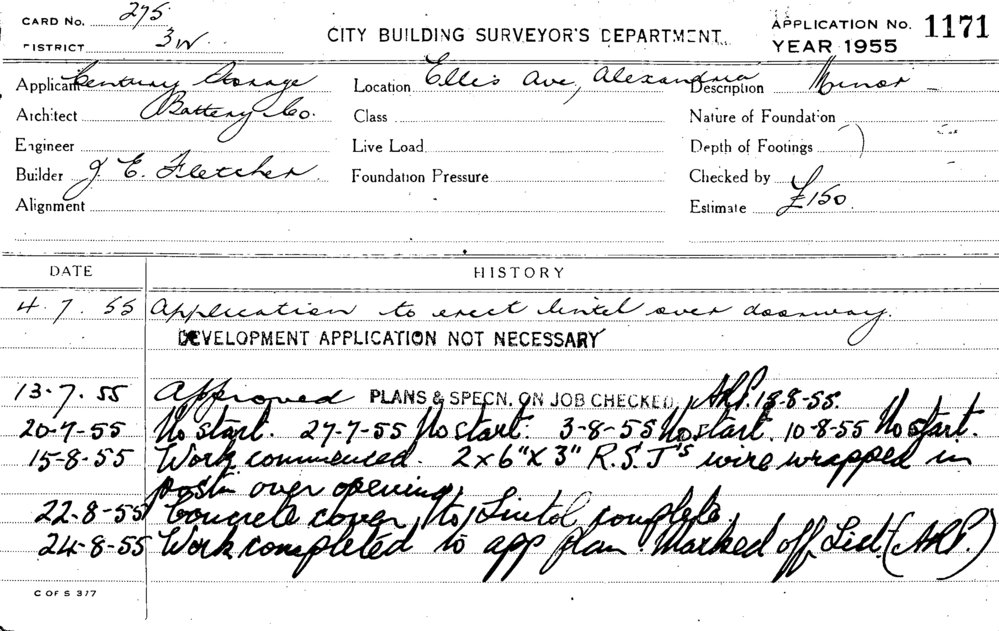 CARD No. 275
DISTRICT 3W.
CITY BUILDING SURVEYOR'S DEPARTMENT.
APPLICATION No. 1171
YEAR 1955
Applicant Century Storage
Location Ellis Ave, Alexandria
Description Minor
Architect Battery Co.
Class
Nature of Foundation
Engineer
Live Load
Depth of Footings
Builder J. E. Fletcher
Foundation Pressure
Checked by
Alignment
Estimate £150.
DATE HISTORY
4.7.55 Application to erect lintel over doorway.
DEVELOPMENT APPLICATION NOT NECESSARY
13-7.55 Approved PLANS & SPECN. ON JOB CHECKED 15-8-55.
20-7-55 No start. 27-7-55 No start. 3-8-55 No start. 10-8-55 No start.
15-8-55 Work commenced. 2x6"x3" R.S.J's wire wrapped in
postn over opening.
22-8-55 Concrete cover to Lintol complete.
24-8-55 Work completed to app plan. Marked off List.
C OF S 377